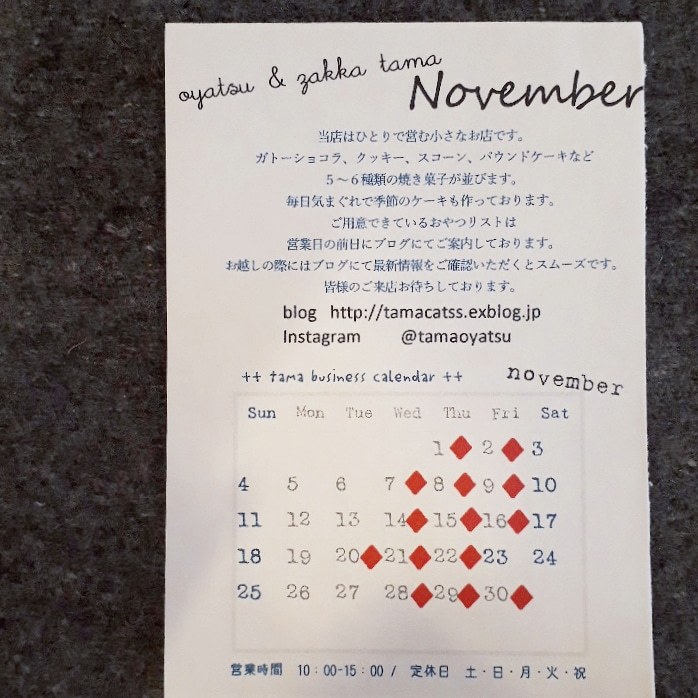 oyatsu & zakka tama
November
当店はひとりで営む小さなお店です。
ガトーショコラ、クッキー、スコーン、パウンドケーキなど
５～６種類の焼き菓子が並びます。
毎日気まぐれで季節のケーキも作っております。
ご用意できているおやつリストは
営業日の前日にブログにてご案内しております。
お越しの際にはブログにて最新情報をご確認いただくとスムーズです。
皆様のご来店お待ちしております。
blog http://tamacatss.exblog.jp
Instagram @tamaoyatsu
++ tama business calendar ++
november
Sun Mon Tue Wed Thu Fri Sat
1 2 3
4 5 6 7 8 9 10
11 12 13 14 15 16 17
18 19 20 21 22 23 24
25 26 27 28 29 30
営業時間 10:00-15:00 / 定休日 土・日・月・火・祝